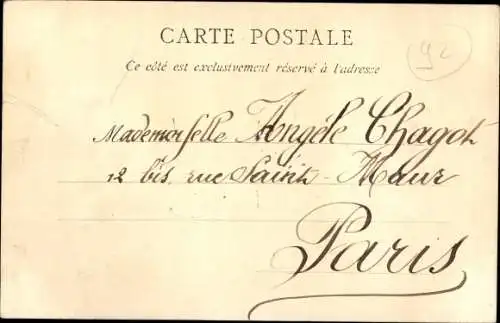 CARTE POSTALE
92
Ce côté est exclusivement réservé à l'adresse
Mademoiselle Angèle Chagot
12 bis rue Saint-Maur
Paris